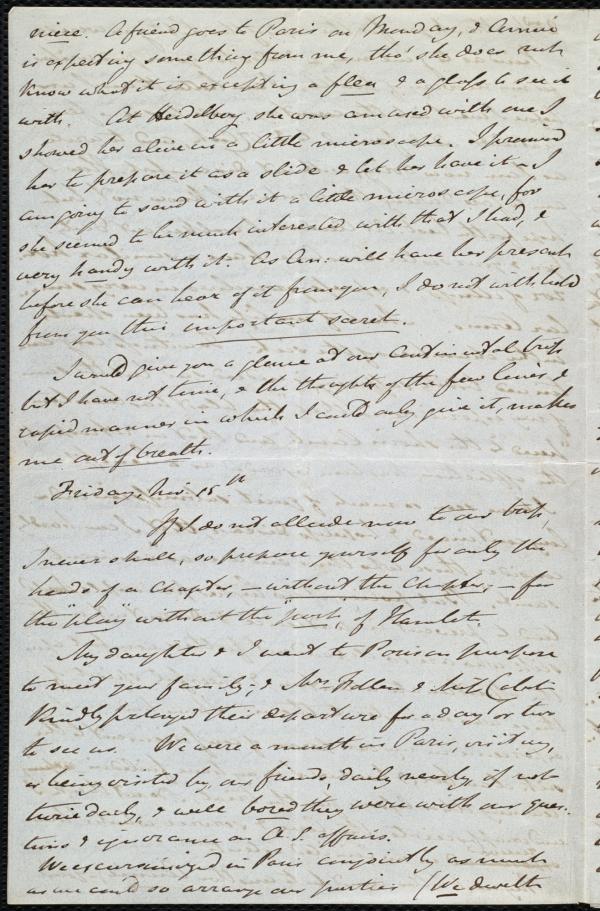 niece. A friend goes to Paris on Monday, & Annie
is expecting something from me, tho' she does not
know what it is excepting a flea & a glass to see it
with. At Heidelberg she was amused with one I
showed her alive in a little microscope. I promised
her to prepare it as a slide & let her have it – I
am going to send with it a little microscope, for
she seemed to be much interested with that I had, &
very handy with it. As An: will have her present
before she can hear of it from you, I do not withhold
from you this important secret.
I would give you a glance at our Continental trip
but I have not time, & the thoughts of the few lines &
rapid manner in which I could only give it, makes
me out of breath.
Friday, Nov. 15th
If I do not allude now to our trip,
I never shall, so prepare yourself for only the
heads of a chapter, – without the chapter, – for
the "play" without the "part" of Hamlet.
My daughter & I went to Paris on purpose
to meet your family; & Mrs Follen & Miss Cabot
kindly prolonged their departure for a day or two
to see us. We were a month in Paris, visiting,
or being visited by, our friends, daily nearly, if not
twice daily, & well bored they were with our ques-
tions & ignorance on A. S. affairs.
We excursionized in Paris conjointly as much
as we could so arrange our parties (We dwelt